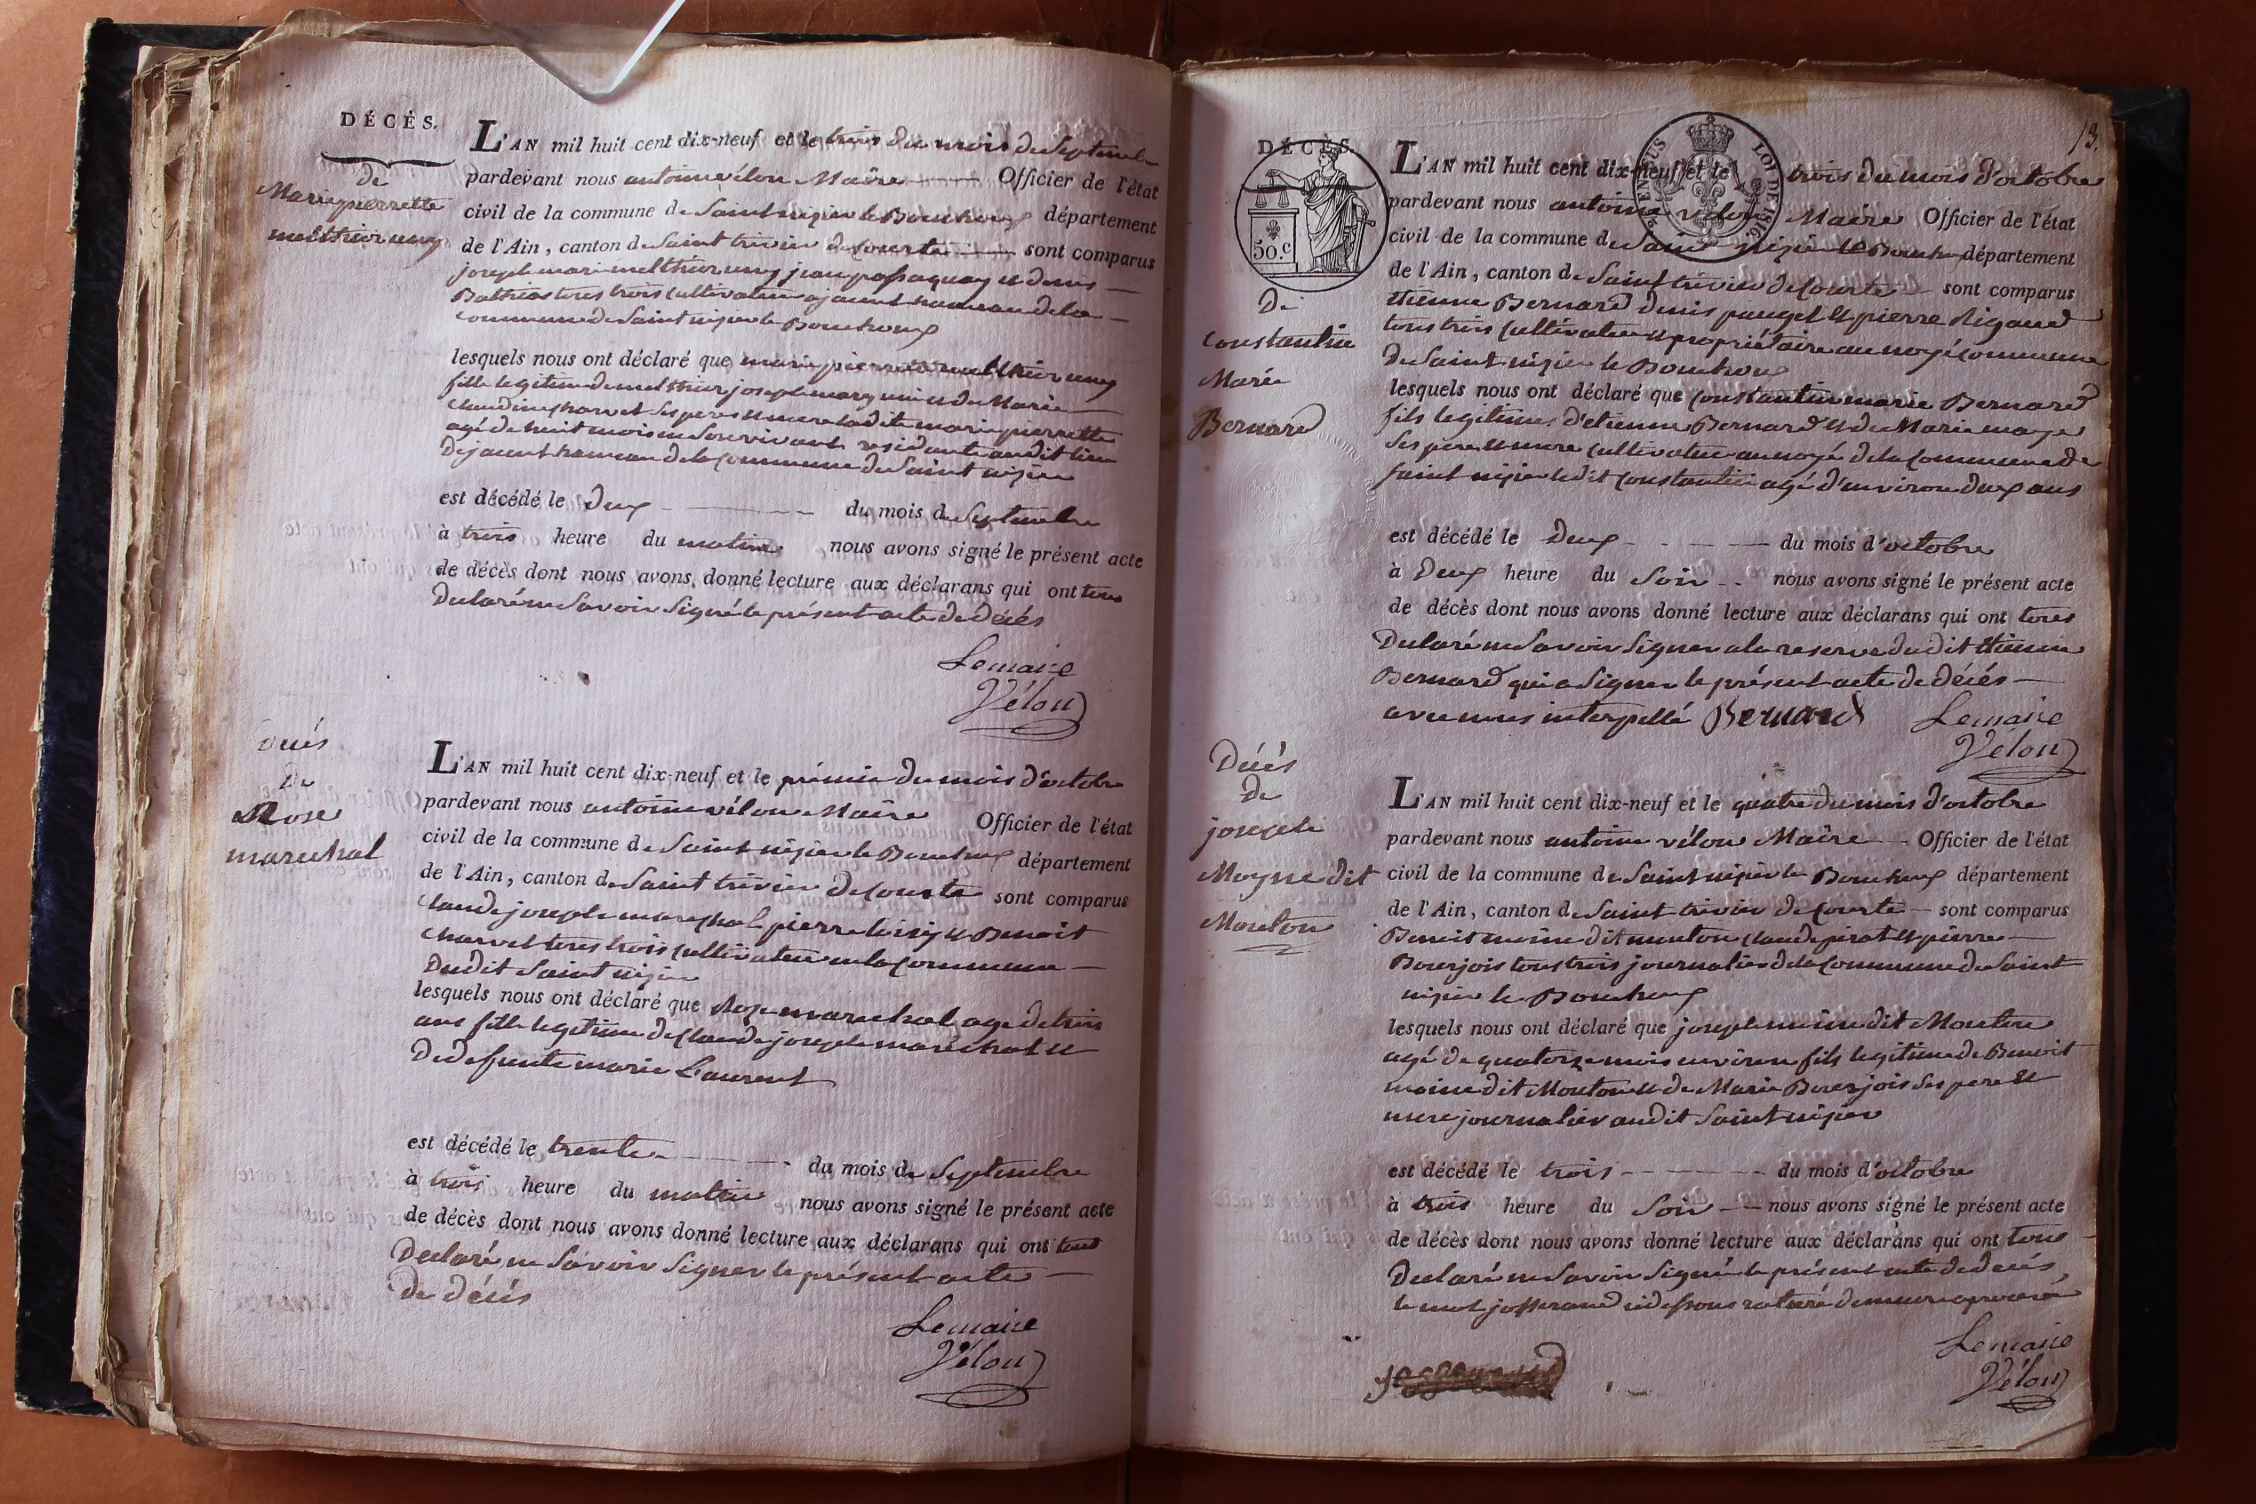 DÉCÈS.
de
Marie pierrette
L'AN mil huit cent dix-neuf et le trois du mois de Septembre
pardevant nous antoine vélon Maire Officier de l'état
civil de la commune de Saint nizier le Bouchoux département
de l'Ain, canton de Saint trivier de Courte sont comparus
joseph marie jean et denis
tous trois cultivateur hameau de la
commune de Saint nizier le Bouchoux
lesquels nous ont déclaré que marie pierrette
fille legitime de joseph mary et de Marie
Claudine charvet ses pere et mere ladite marie pierrette
agé de huit mois residante audit lieu
hameau de la commune de Saint nizier
est décédé le deux du mois de Septembre
à trois heure du matin nous avons signé le présent acte
de décès dont nous avons donné lecture aux déclarans qui ont tous
Declaré ne Savoir Signé le présent acte de décés
Lemaire
Vélon
Décés
De
Rose
marechal
L'AN mil huit cent dix-neuf et le prémier du mois d'octobre
pardevant nous antoine vélon Maire Officier de l'état
civil de la commune de Saint nizier le Bouchoux département
de l'Ain, canton de Saint trivier de Courte sont comparus
Claude joseph marechal pierre et Benoit
Charvet tous trois cultivateur en la commune
Dudit Saint nizier
lesquels nous ont déclaré que Rose marechal age de trois
ans fille legitime de Claude joseph maréchal et
De defunte marie Laurent
est décédé le trente du mois de Septembre
à trois heure du matin nous avons signé le présent acte
de décès dont nous avons donné lecture aux déclarans qui ont tous
Declaré ne Savoir Signer le présent acte
De décés
Lemaire
Vélon
13.
DÉCÈS.
50.c
LOI DE 1816.
De
Constantin
Marie
Bernard
L'AN mil huit cent dix-neuf et le trois du mois d'octobre
pardevant nous antoine vélon Maire Officier de l'état
civil de la commune de Saint nizier le Bouchoux département
de l'Ain, canton de Saint trivier de Courte sont comparus
étienne Bernard denis pauget et pierre Rigaud
tous trois cultivateur et propriétaire au noyé commune
de Saint nizier le Bouchoux
lesquels nous ont déclaré que Constantin marie Bernard
fils legitime d'étienne Bernard et de Marie
Ses pere et mere cultivateur au noyé de la Commune de
Saint nizier ledit Constantin agé d'environ deux ans
est décédé le Deux du mois d'octobre
à Deux heure du Soir nous avons signé le présent acte
de décès dont nous avons donné lecture aux déclarans qui ont tous
Declaré ne Savoir Signer a la reserve du dit étienne
Bernard qui a Signer le présent acte de décés
avec nous interpellé Bernard Lemaire
Vélon
Décés
de
joseph
Moyne dit
Mouton
L'AN mil huit cent dix-neuf et le quatre du mois d'octobre
pardevant nous antoine vélon Maire Officier de l'état
civil de la commune de Saint nizier le Bouchoux département
de l'Ain, canton de Saint trivier de Courte sont comparus
Benoit moine dit mouton claude pirat et pierre
Bourjois tous trois journalier de la Commune de Saint
nizier le Bouchoux
lesquels nous ont déclaré que joseph moine dit Mouton
agé de quatorze mois environ fils legitime de Benoit
moine dit Mouton et de Marie Bourjois Ses pere et
mere journalier audit Saint nizier
est décédé le trois du mois d'octobre
à trois heure du Soir nous avons signé le présent acte
de décès dont nous avons donné lecture aux déclarans qui ont tous
Declaré ne Savoir Signé le présent acte de décés,
le mot josserand cidessous raturé demeure aprouvé
Lemaire
Vélon